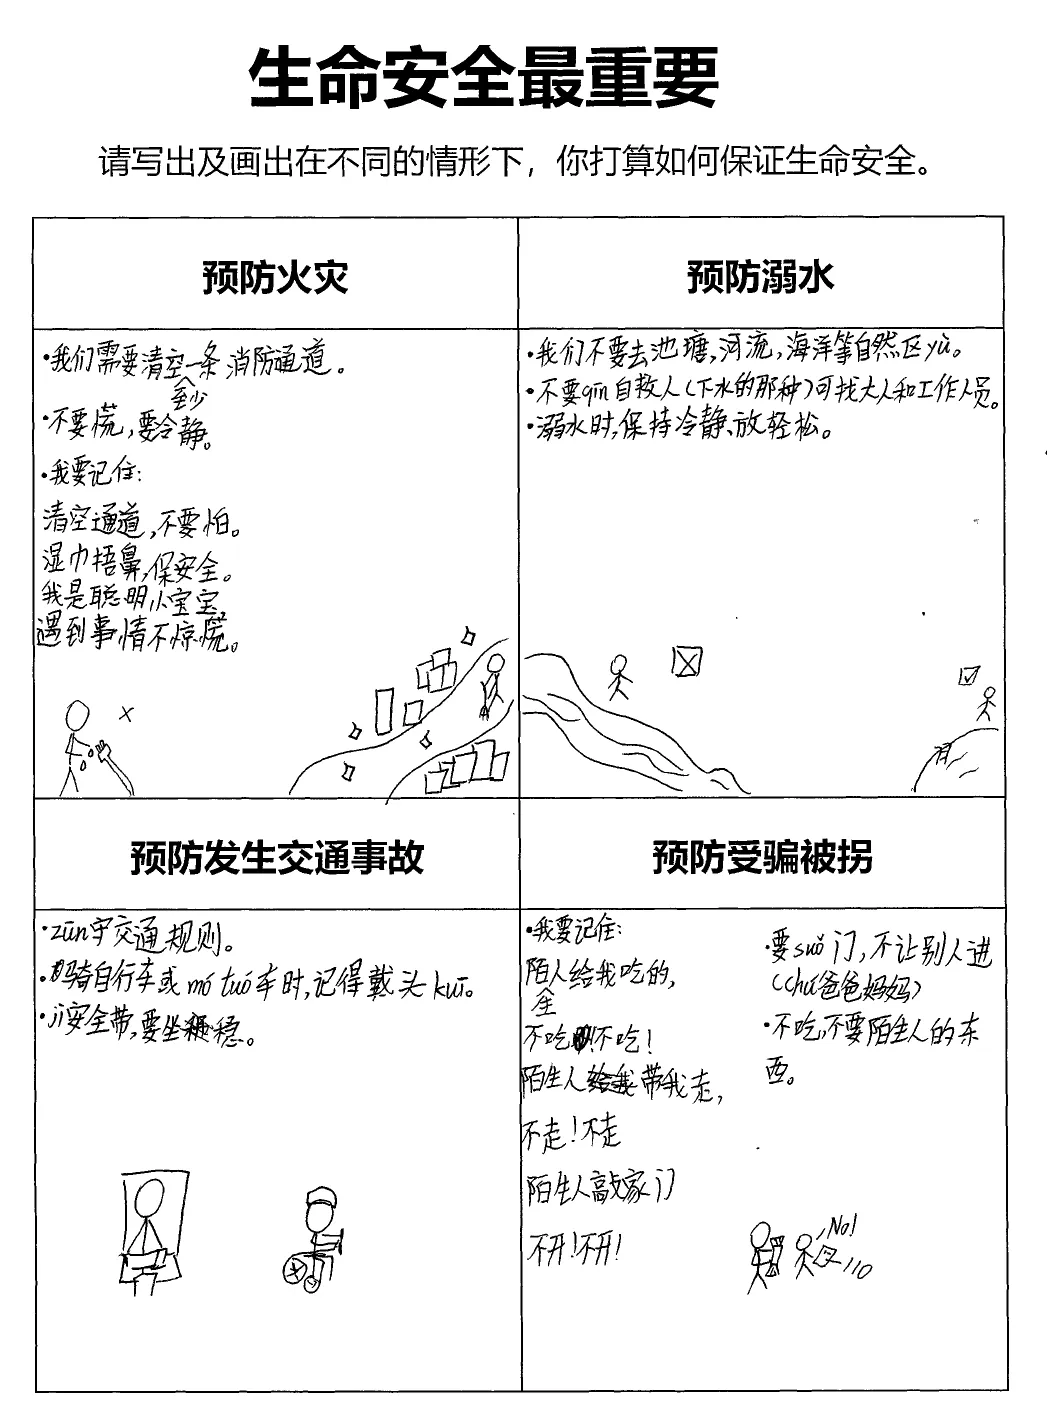 生命安全最重要
请写出及画出在不同的情形下，你打算如何保证生命安全。
预防火灾
·我们需要清空一条消防通道。
至少
·不要慌，要冷静。
·我要记住：
清空通道，不要怕。
湿巾捂鼻，保安全。
我是聪明小宝宝，
遇到事情不惊慌。
×
预防溺水
·我们不要去池塘，河流，海洋等自然区yù。
·不要qīn自救人（下水的那种）可找大人和工作人员。
·溺水时，保持冷静、放轻松。
预防发生交通事故
·zūn守交通规则。
·骑自行车或mó tuó车时，记得戴头kuī。
·jì安全带，要坐稳。
预防受骗被拐
·我要记住：
陌人给我吃的，
生
不吃！不吃！
陌生人带我走，
不走！不走
陌生人敲家门
不开！不开！
·要suǒ门，不让别人进
（chú爸爸妈妈）
·不吃，不要陌生人的东
西。
No!
110